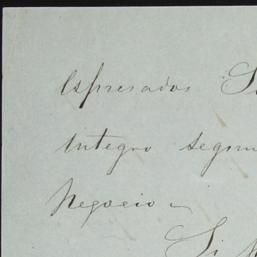 Espresados S
Integro segun
Negocio
Si